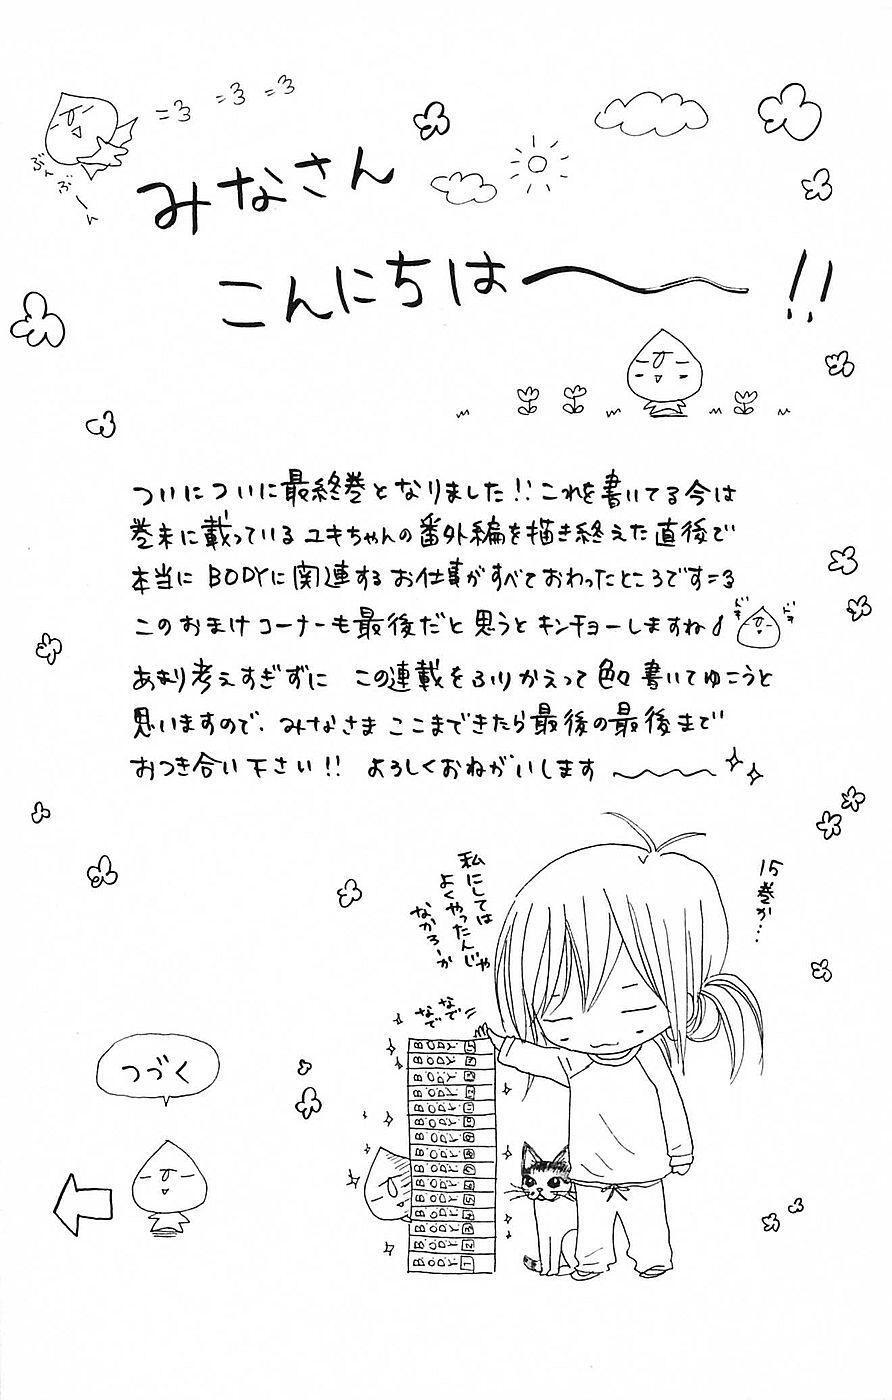 ぶんぶーん
みなさん
こんにちは〜!!
ついについに最終巻となりました!!これを書いてる今は
巻末に載っているユキちゃんの番外編を描き終えた直後で
本当にBODYに関連するお仕事がすべておわったところです=3
このおまけコーナーも最後だと思うとキンチョーしますね♪
ドキ
ドキ
あまり考えすぎずに この連載をふりかえって色々書いてゆこうと
思いますので、みなさまここまできたら最後の最後まで
おつき合い下さい!! よろしくおねがいします〜
15巻か…
私にしては
よくやったんじゃ
なかろーか
なで
なで
BODY 15
BODY 14
BODY 13
BODY 12
BODY 11
BODY 10
BODY 9
BODY 8
BODY 7
BODY 6
BODY 5
BODY 4
BODY 3
BODY 2
BODY 1
つづく